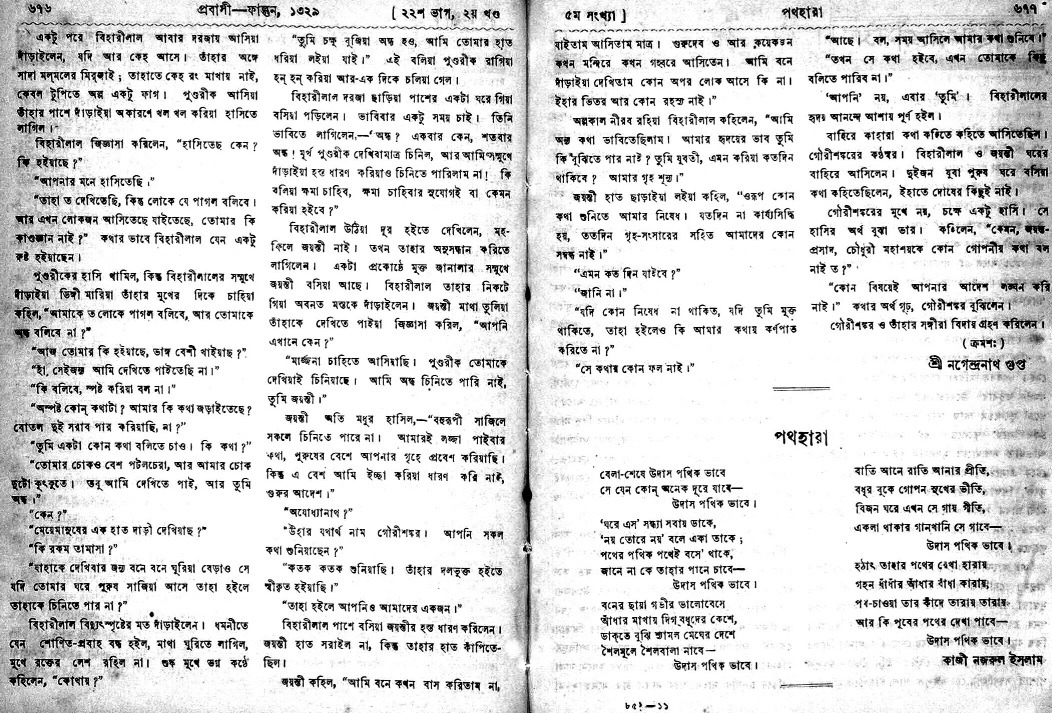 ৬৭৬
প্রবাসী—ফাল্গুন, ১৩২৯
[ ২২শ ভাগ, ২য় খণ্ড
একটু পরে বিহারীলাল আবার দরজায় আসিয়া
দাঁড়াইলেন, যদি আর কেহ আসে। তাঁহার অঙ্গে
সাদা মল্‌মলের মির্‌জাই; তাহাতে কেহ রং মাখায় নাই,
কেবল টুপিতে অল্প একটু ফাগ। পুণ্ডরীক আসিয়া
তাঁহার পাশে দাঁড়াইয়া অকারণে খল খল করিয়া হাসিতে
লাগিল।
বিহারীলাল জিজ্ঞাসা করিলেন, “হাসিতেছ কেন?
কি হইয়াছে?”
“আপনার মনে হাসিতেছি।”
“তাহা ত দেখিতেছি, কিন্তু লোকে যে পাগল বলিবে।
আর এখন লোকজন আসিতেছে যাইতেছে, তোমার কি
কাণ্ডজ্ঞান নাই?” কথার ভাবে বিহারীলাল যেন একটু
রুষ্ট হইয়াছেন।
পুণ্ডরীকের হাসি থামিল, কিন্তু বিহারীলালের সম্মুখে
দাঁড়াইয়া ডিঙ্গী মারিয়া তাঁহার মুখের দিকে চাহিয়া
কহিল, “আমাকে ত লোকে পাগল বলিবে, আর তোমাকে
অন্ধ বলিবে না?”
“আজ তোমার কি হইয়াছে, ভাঙ্গ বেশী খাইয়াছ?”
“হাঁ, সেইজন্য আমি দেখিতে পাইতেছি না।”
“কি বলিবে, স্পষ্ট করিয়া বল না।”
“অস্পষ্ট কোন্ কথাটা? আমার কি কথা জড়াইতেছে?
বোতল দুই সরাব পার করিয়াছি, না?”
“তুমি একটা কোন কথা বলিতে চাও। কি কথা?”
“তোমার চোকও বেশ পটলচেরা, আর আমার চোক
দুটো কুৎকুতে। তবু আমি দেখিতে পাই, আর তুমি
অন্ধ।”
“কেন?”
“মেয়েমানুষের এক হাত দাড়ী দেখিয়াছ?”
“কি রকম তামাসা?”
“যাহাকে দেখিবার জন্য বনে বনে ঘুরিয়া বেড়াও সে
যদি তোমার ঘরে পুরুষ সাজিয়া আসে তাহা হইলে
তাহাকে চিনিতে পার না?”
বিহারীলাল বিদ্যুৎস্পৃষ্টের মত দাঁড়াইলেন। ধমনীতে
যেন শোণিত-প্রবাহ বদ্ধ হইল, মাথা ঘুরিতে লাগিল,
মুখে রক্তের লেশ রহিল না। শুষ্ক মুখে ভগ্ন কণ্ঠে
কহিলেন, “কোথায়?”
“তুমি চক্ষু বুজিয়া অন্ধ হও, আমি তোমার হাত
ধরিয়া লইয়া যাই।” এই বলিয়া পুণ্ডরীক রাগিয়া
হন্ হন্ করিয়া আর-এক দিকে চলিয়া গেল।
বিহারীলাল দরজা ছাড়িয়া পাশের একটা ঘরে গিয়া
বসিয়া পড়িলেন। ভাবিবার একটু সময় চাই। তিনি
ভাবিতে লাগিলেন,—‘অন্ধ? একবার কেন, শতবার
অন্ধ! মূর্খ পুণ্ডরীক দেখিবামাত্র চিনিল, আর আমি সম্মুখে
দাঁড়াইয়া হস্ত ধারণ করিয়াও চিনিতে পারিলাম না! কি
বলিয়া ক্ষমা চাহিব, ক্ষমা চাহিবার সুযোগই বা কেমন
করিয়া হইবে?’
বিহারীলাল উঠিয়া দূর হইতে দেখিলেন, মহ-
ফিলে জয়ন্তী নাই। তখন তাহার অনুসন্ধান করিতে
লাগিলেন। একটা প্রকোষ্ঠে মুক্ত জানালার সম্মুখে
জয়ন্তী বসিয়া আছে। বিহারীলাল তাহার নিকটে
গিয়া অবনত মস্তকে দাঁড়াইলেন। জয়ন্তী মাথা তুলিয়া
তাঁহাকে দেখিতে পাইয়া জিজ্ঞাসা করিল, “আপনি
এখানে কেন?”
“মার্জ্জনা চাহিতে আসিয়াছি। পুণ্ডরীক তোমাকে
দেখিয়াই চিনিয়াছে। আমি অন্ধ চিনিতে পারি নাই,
তুমি জয়ন্তী।”
জয়ন্তী অতি মধুর হাসিল,—“বহুরূপী সাজিলে
সকলে চিনিতে পারে না। আমারই লজ্জা পাইবার
কথা, পুরুষের বেশে আপনার গৃহে প্রবেশ করিয়াছি।
কিন্তু এ বেশ আমি ইচ্ছা করিয়া ধারণ করি নাই,
গুরুর আদেশ।”
“অযোধ্যানাথ?”
“উহার যথার্থ নাম গৌরীশঙ্কর। আপনি সকল
কথা শুনিয়াছেন?”
“কতক কতক শুনিয়াছি। তাঁহার দলভুক্ত হইতে
স্বীকৃত হইয়াছি।”
“তাহা হইলে আপনিও আমাদের একজন।”
বিহারীলাল পাশে বসিয়া জয়ন্তীর হস্ত ধারণ করিলেন।
জয়ন্তী হাত সরাইল না, কিন্তু তাহার হাত কাঁপিতে-
ছিল।
জয়ন্তী কহিল, “আমি বনে কখন বাস করিতাম না,
৫ম সংখ্যা ]
পথহারা
৬৭৭
যাইতাম আসিতাম মাত্র। গুরুদেব ও আর কয়েকজন
কখন মন্দিরে কখন গহ্বরে আসিতেন। আমি বনে
দাঁড়াইয়া দেখিতাম কোন অপর লোক আসে কি না।
ইহার ভিতর আর কোন রহস্য নাই।”
অল্পকাল নীরব রহিয়া বিহারীলাল কহিলেন, “আমি
অন্য কথা ভাবিতেছিলাম। আমার হৃদয়ের ভাব তুমি
কি বুঝিতে পার নাই? তুমি যুবতী, এমন করিয়া কতদিন
থাকিবে? আমার গৃহ শূন্য।”
জয়ন্তী হাত ছাড়াইয়া লইয়া কহিল, “ওরূপ কোন
কথা শুনিতে আমার নিষেধ। যতদিন না কার্য্যসিদ্ধি
হয়, ততদিন গৃহ-সংসারের সহিত আমাদের কোন
সম্বন্ধ নাই।”
“এমন কত দিন যাইবে?”
“জানি না।”
“যদি কোন নিষেধ না থাকিত, যদি তুমি মুক্ত
থাকিতে, তাহা হইলেও কি আমার কথায় কর্ণপাত
করিতে না?”
“সে কথায় কোন ফল নাই।”
“আছে। বল, সময় আসিলে আমার কথা শুনিবে।”
“তখন সে কথা হইবে, এখন তোমাকে কিছু
বলিতে পারিব না।”
‘আপনি’ নয়, এবার ‘তুমি’। বিহারীলালের
হৃদয় আনন্দে আশায় পূর্ণ হইল।
বাহিরে কাহারা কথা কহিতে কহিতে আসিতেছিল।
গৌরীশঙ্করের কণ্ঠস্বর। বিহারীলাল ও জয়ন্তী ঘরের
বাহিরে আসিলেন। দুইজন যুবা পুরুষ ঘরে বসিয়া
কথা কহিতেছিলেন, ইহাতে দোষের কিছুই নাই।
গৌরীশঙ্করের মুখে নয়, চক্ষে একটু হাসি। সে
হাসির অর্থ বুঝা ভার। কহিলেন, “কেমন, জয়ন্ত-
প্রসাদ, চৌধুরী মহাশয়কে কোন গোপনীয় কথা বল
নাই ত?”
“কোন বিষয়েই আপনার আদেশ লঙ্ঘন করি
নাই।” কথার অর্থ গূঢ়, গৌরীশঙ্কর বুঝিলেন।
গৌরীশঙ্কর ও তাঁহার সঙ্গীরা বিদায় গ্রহণ করিলেন।
( ক্রমশঃ )
শ্রী নগেন্দ্রনাথ গুপ্ত
পথহারা
বেলা-শেষে উদাস পথিক ভাবে
সে যেন কোন্ অনেক দূরে যাবে—
উদাস পথিক ভাবে।
‘ঘরে এস’ সন্ধ্যা সবায় ডাকে,
‘নয় তোরে নয়’ বলে একা তাকে;
পথের পথিক পথেই বসে’ থাকে,
জানে না কে তাহার পানে চাবে—
উদাস পথিক ভাবে।
বনের ছায়া গভীর ভালোবেসে
আঁধার মাথায় দিগ্‌বধূদের কেশে,
ডাকতে বুঝি শ্যামল মেঘের দেশে
শৈলমূলে শৈলবালা নাবে—
উদাস পথিক ভাবে।
বাতি আনে রাতি আনার প্রীতি,
বধূর বুকে গোপন সুখের ভীতি,
বিজন ঘরে এখন সে গায় গীতি,
একলা থাকার গানখানি সে গাবে—
উদাস পথিক ভাবে।
হঠাৎ তাহার পথের রেখা হারায়
গহন ধাঁধার আঁধার বাঁধা কারায়,
পথ-চাওয়া তার কাঁদে তারায় তারায়
আর কি পূবের পথের দেখা পাবে—
উদাস পথিক ভাবে।
কাজী নজরুল ইসলাম
৮৫২—১১